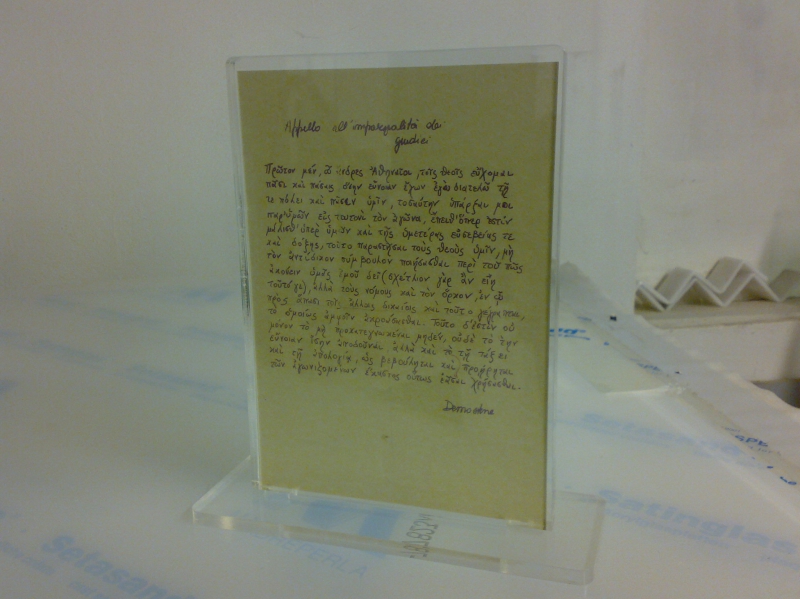 Appello all'imparzialità dei
giudici
Πρῶτον μέν, ὦ ἄνδρες Ἀθηναῖοι, τοῖς θεοῖς εὔχομαι
πᾶσι καὶ πάσαις ὅσην εὔνοιαν ἔχων ἐγὼ διατελῶ τῇ
τε πόλει καὶ πᾶσιν ὑμῖν, τοσαύτην ὑπάρξαι μοι
παρ' ὑμῶν εἰς τουτονὶ τὸν ἀγῶνα, ἔπειθ' ὅπερ ἐστὶν
μάλισθ' ὑπὲρ ὑμῶν καὶ τῆς ὑμετέρας εὐσεβείας τε
καὶ δόξης, τοῦτο παραστῆσαι τοὺς θεοὺς ὑμῖν, μὴ
τὸν ἀντίδικον σύμβουλον ποιήσασθαι περὶ τοῦ πῶς
ἀκούειν ὑμᾶς ἐμοῦ δεῖ (σχέτλιον γὰρ ἂν εἴη
τοῦτό γε), ἀλλὰ τοὺς νόμους καὶ τὸν ὅρκον, ἐν ᾧ
πρὸς ἅπασι τοῖς ἄλλοις δικαίοις καὶ τοῦτο γέγραπται,
τὸ ὁμοίως ἀμφοῖν ἀκροάσασθαι. Τοῦτο δ' ἐστὶν οὐ
μόνον τὸ μὴ προκατεγνωκέναι μηδέν, οὐδὲ τὸ τὴν
εὔνοιαν ἴσην ἀποδοῦναι, ἀλλὰ καὶ τὸ τῇ τάξει
καὶ τῇ ἀπολογίᾳ, ὡς βεβούληται καὶ προῄρηται
τῶν ἀγωνιζομένων ἕκαστος, οὕτως ἐᾶσαι χρήσασθαι.
Demostene
Setasand
Satinglas